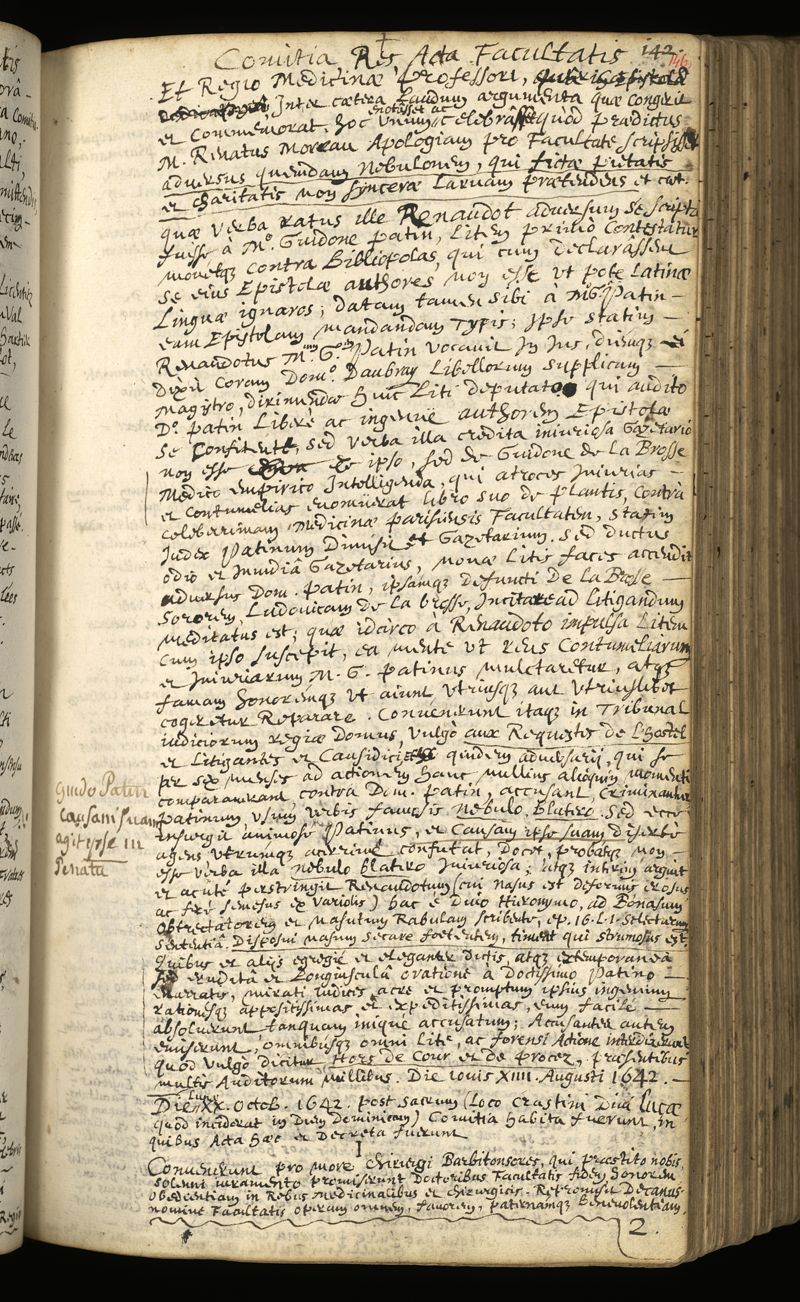 Comitia Res Acta Facultatis 142.
Et Regio Medicinæ Professori,
Inter cætera Laudum argumenta quæ congerit
et Commemorat. hoc unum celebrasset quod prædictus
M. Renatus Moreau Apologiam pro Facultate scripsisset
adversus quemdam Nebulonem, qui fictæ pietatis
et charitatis non synceræ Larvam prætendens et cæt.
quæ verba ratus ille Renaudot adversum se scripta
fuisse à Mo. Guidone Patin, Litem primò Contestatur
movetque contra Bibliopolas, qui cum declarâssent
se eius Epistolæ authores non esse ut pote Latinæ
Linguæ ignaros; datam tamen sibi à Mro Patin
eam Epistolam mandandam Typis; Ipse statim
Renaudotus Mum G. Patin vocavit In Ius, diemque ei
dixit Coram Domo. Daubray Libellorum supplicum
Magistro, dirimendæ huic Liti deputato qui audito
Do. patin Liberè ac ingenuè authorem Epistolæ
se Confitente, sed verba illa credita iniuriosa Gazetario
non esse de ipso, sed de Guidone de La Brosse
Medico empirico Intelligenda, qui atroces Iniurias
et contumelias evomuerat libro suo de plantis, Contra
celeberrimam Medicinæ parisiensis Facultatem, statim
Iudex Patinum Dimisit et Gazetarium. sed ductus
odio et Invidiâ Gazetarius, novæ Litis faces accendit
adversus Dom. Patin, ipsamque defuncti De La Brosse
sororem, Ludovicam de la brosse, Incitare ad litigandum
meditatus est; quæ idcirco à Renaudoto impulsa Litem
cum ipso suscepit, ea mente ut reus Contumeliarum
et Iniuriarum M. G. Patinus mulctaretur, atque
famam honoremque ut aiunt utriusque aut utriuslibet
cogeretur Reparare. Convenerunt itaque in Tribunal
iudiciorum regiæ domus, vulgò aux Requestes de L'hostel
et Litigantes et Causidici quidem adversarij, qui se
per sex menses ad actionem hanc nullius alioquin momenti
comparaverant contra Dom. Patin, accusant, criminantur
Patinum, usum verbis famosis Nebulo. Blatero. Sed ecce
insurgit animose Patinus, et Causam ipse suam disertè
agens utrumque acerrimè confutat, Docet, probatque non
esse verba illa nebulo blatero Iniuriosa; atque interim arguit
et acutè perstringit Renaudotum (cui nasus est deformis erosus
ac ferè semesus ex variolis) hac è Divo Hieronymo, ad Bonasum
obtrectatorem et nasutum Rabulam scribente, ep. 16. L. 1. Selectarum
sententiâ. Disposui nasum secare foetentem, timeat qui strumosus est.
Quibus et alijs egregiè et eleganter dictis, atque extemporaneâ
sed eruditâ et Longiusculâ oratione à Doctissimo Patino
enarratis, mirati Iudices acre et promptum ipsius ingenium
rationesque appositissimas et expeditissimas, eum facilè
absolverunt tanquam iniquè accusatum; Accusantes autem
emiserunt, omnibusque omni Lite, ac forensi Actione interdixerunt
quod vulgo dicitur Hors de Cour et de procez, præsentibus
multis Auditorum millibus. Die Iovis XIIII. Augusti 1642.
Die Lunæ XX. Octob. 1642. post sacrum (Loco crastini Divi Lucæ
quod inciderat in Diem Dominicam) Comitia habita fuerunt, in
quibus Acta hæc et Decreta fuerunt
I
Convenerunt pro more chirurgi Barbitonsores, qui præstito nobis
solenni iuramento promiserunt Doctoribus Facultatis fidem honorem
obedientiam in Rebus Medicinalibus et chirurgicis. Repromisit Decanus
nomine Facultatis operam omnem, favorem, paternamque Benevolentiam.
2.
Guido Patin
causam suam
agit ipse in
senatu